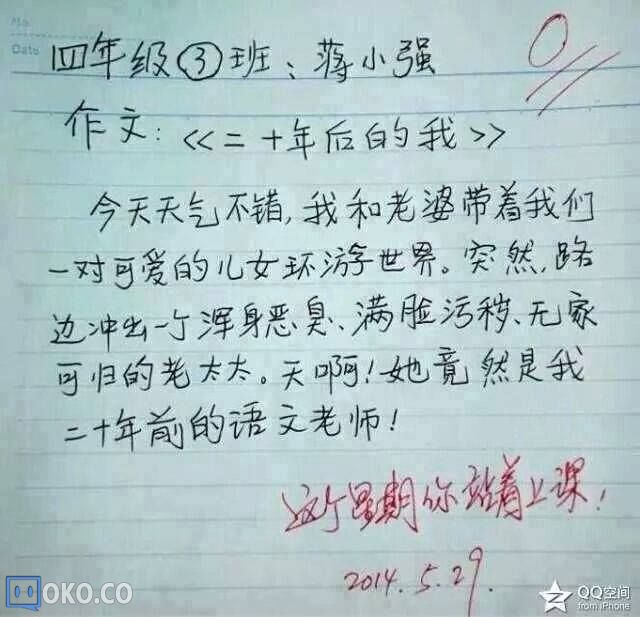 No
Date
四年级③班:蒋小强
0
作文:《二十年后的我》
今天天气不错,我和老婆带着我们
一对可爱的儿女环游世界。突然,路
边冲出一个浑身恶臭、满脸污秽、无家
可归的老太太。天啊!她竟然是我
二十年前的语文老师!
这个星期你站着上课!
2014.5.29.
OKO.CO
QQ空间
from iPhone